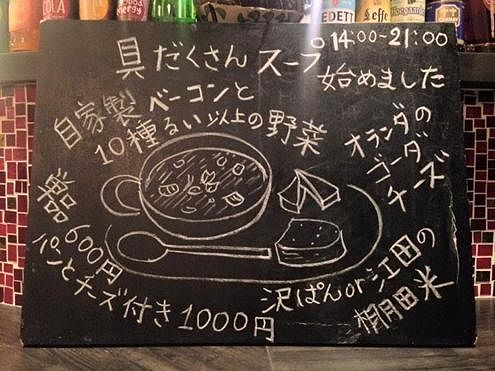 14:00~21:00
具だくさんスープ
始めました
自家製ベーコンと
10種るい以上の野菜
オランダの
ゴーダ
チーズ
単品600円
パンとチーズ付き1000円
沢ぱんor江田の
棚田米